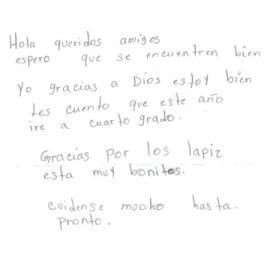 Hola queridos amigos
espero que se encuentren bien
Yo gracias a Dios estoy bien
Les cuento que este año
ire a cuarto grado.
Gracias por los lapiz
esta muy bonitos.
cuidense mucho hasta.
pronto.